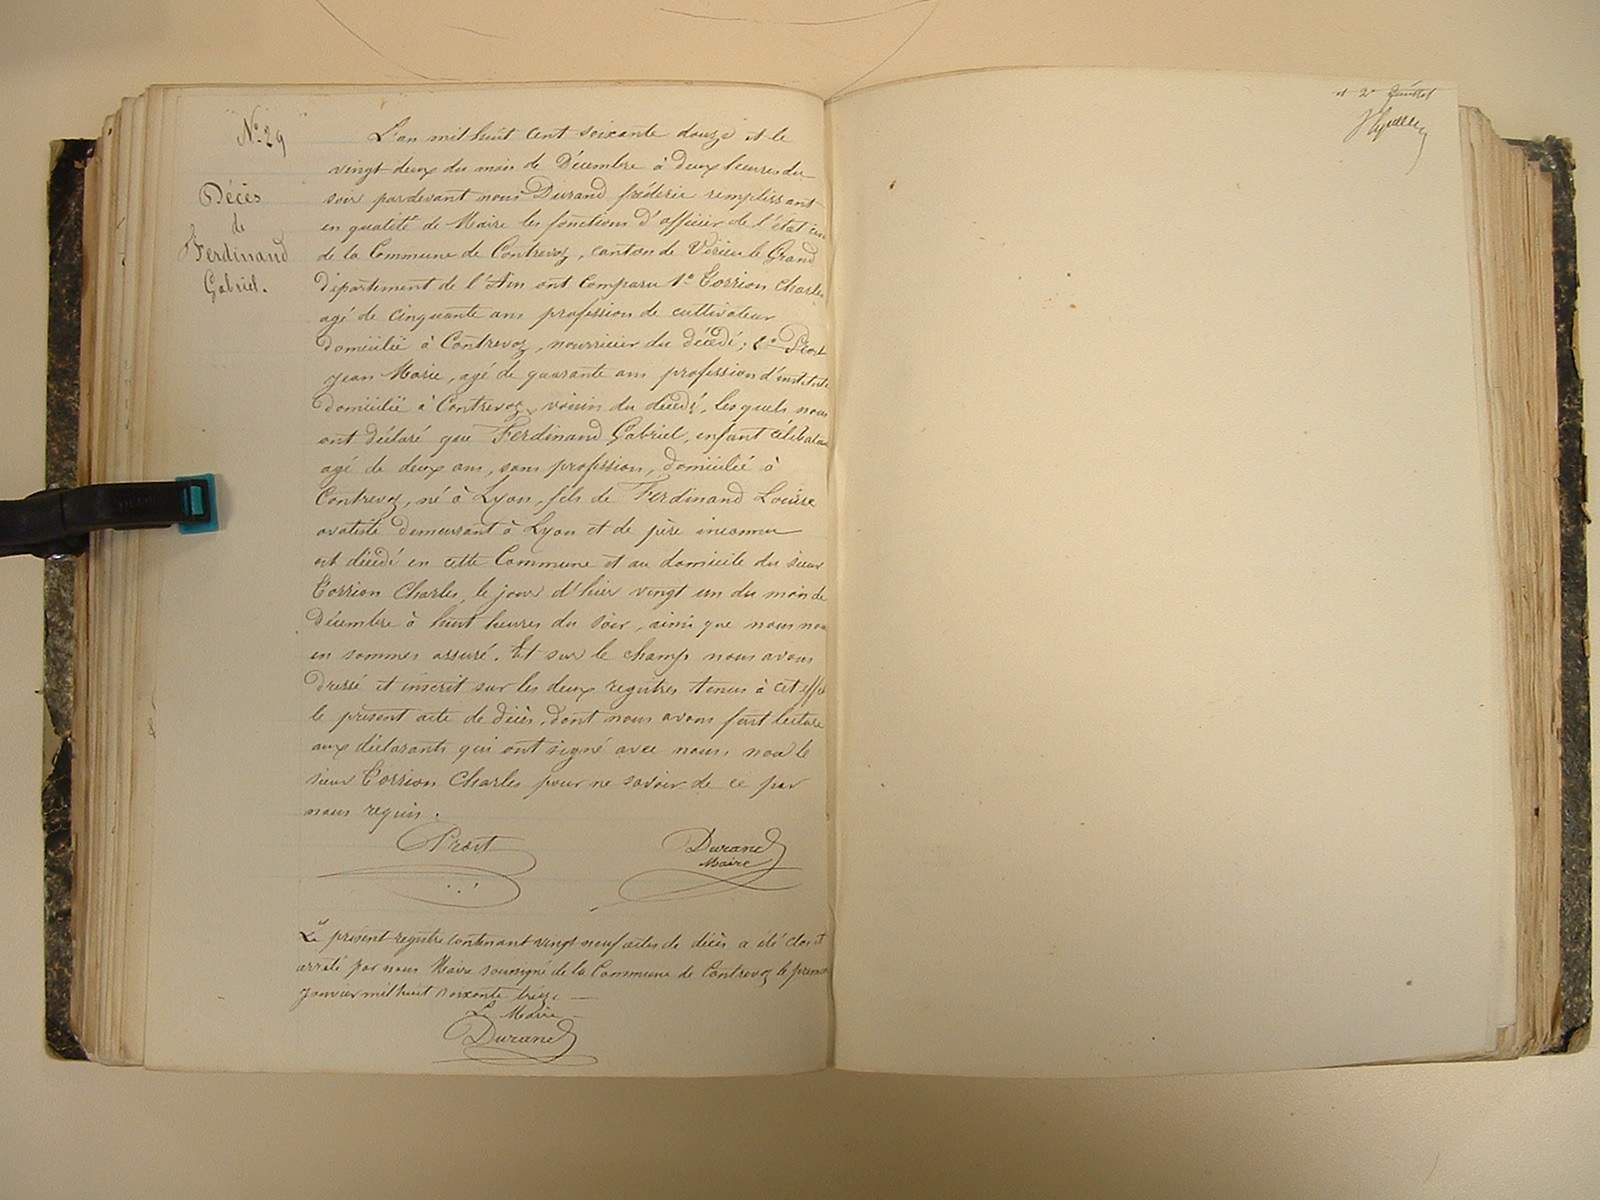 N° 29
Décès
de
Ferdinand
Gabriel.
L'an mil huit cent soixante douze et le
vingt deux du mois de Décembre à deux heures du
soir pardevant nous Durand fréderic remplissant
en qualité de Maire les fonctions d'officier de l'état civ
de la Commune de Contrevoz, canton de Virieu le Grand
département de l'Ain ont comparu 1° Corrion Charles
agé de cinquante ans profession de cultivateur
domicilié à Contrevoz, nourricier du décédé; 2° Prost
Jean Marie, agé de quarante ans profession d'institute
domicilié à Contrevoz, voisin du décédé, lesquels nous
ont déclaré que Ferdinand Gabriel, enfant célibataire
agé de deux ans, sans profession, domicilié à
Contrevoz, né à Lyon, fils de Ferdinand Louise
ovaliste demeurant à Lyon et de père inconnu
est décédé en cette Commune et au domicile du sieur
Corrion Charles, le jour d'hier vingt un du mois de
Décembre à huit heures du soir, ainsi que nous nous
en sommes assuré. Et sur le champ nous avons
dressé et inscrit sur les deux registres tenus à cet effet
le présent acte de décès, dont nous avons fait lecture
aux déclarants qui ont signé avec nous, non le
sieur Corrion Charles pour ne savoir de ce par
nous requis.
Prost Durand
Maire
Le présent registre contenant vingt neuf actes de décès a été clos et
arrêté par nous Maire soussigné de la Commune de Contrevoz le premier
Janvier mil huit soixante treize
Le Maire
Durand
et 2e